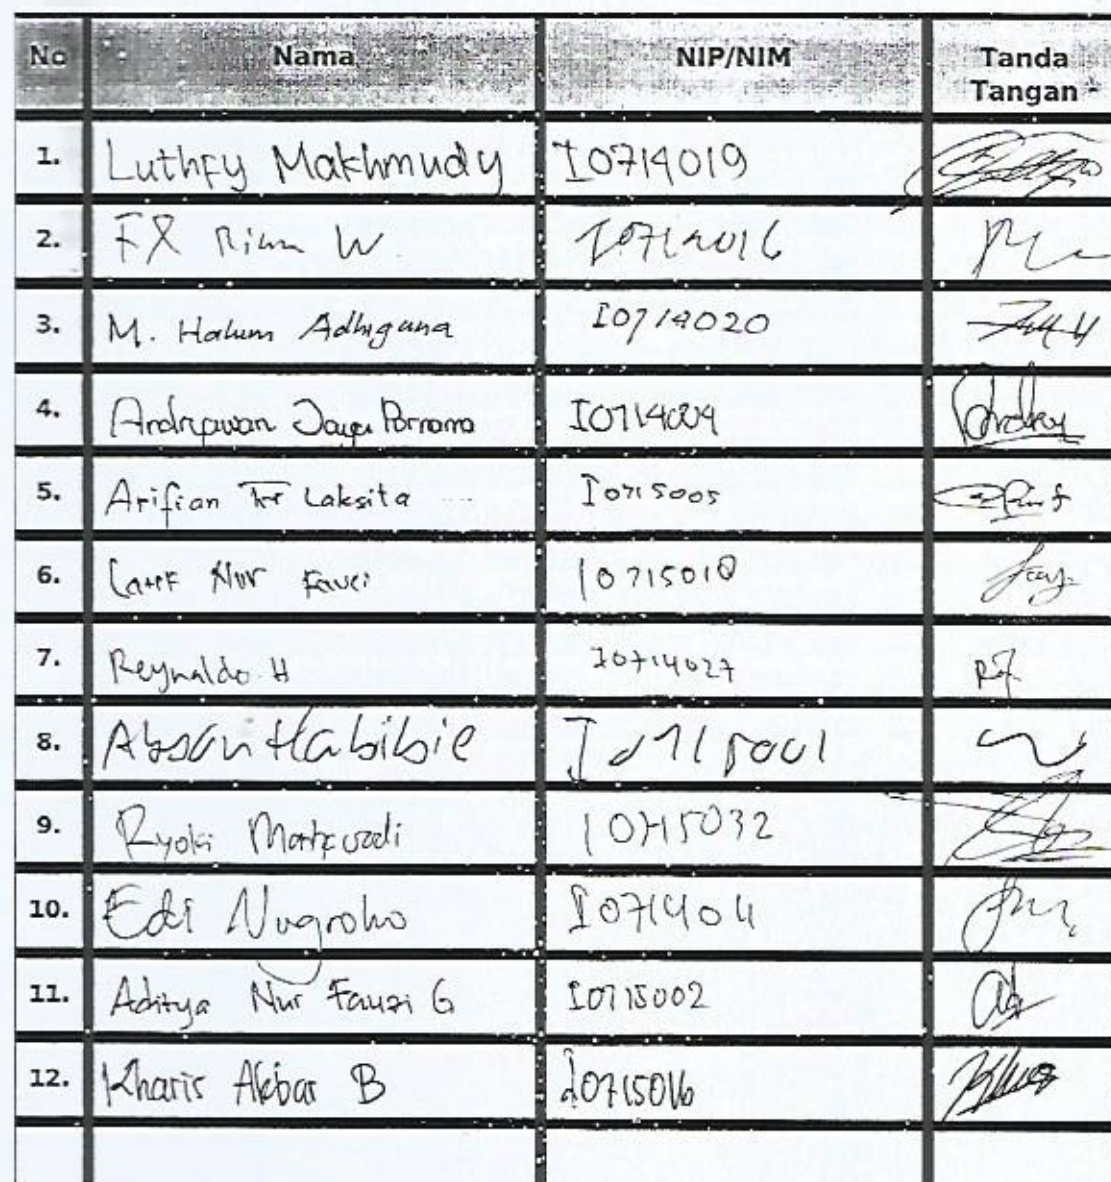 No Nama NIP/NIM Tanda
Tangan
1. Luthfy Makhmudy I0714019
2. FX W I0714016
3. M. Halum Adhiguna I0714020
4. Jaya I0714004
5. Arifian Tri Laksita I0715005
6. Nur Fauzi I0715018
7. Reynaldo H I0714027
8. Absön Habibie I0715001
9. Ryoki I0715032
10. Edi Nugroho I0714011
11. Aditya Nur Fauzi G I0715002
12. Kharis Akbar B I0715016